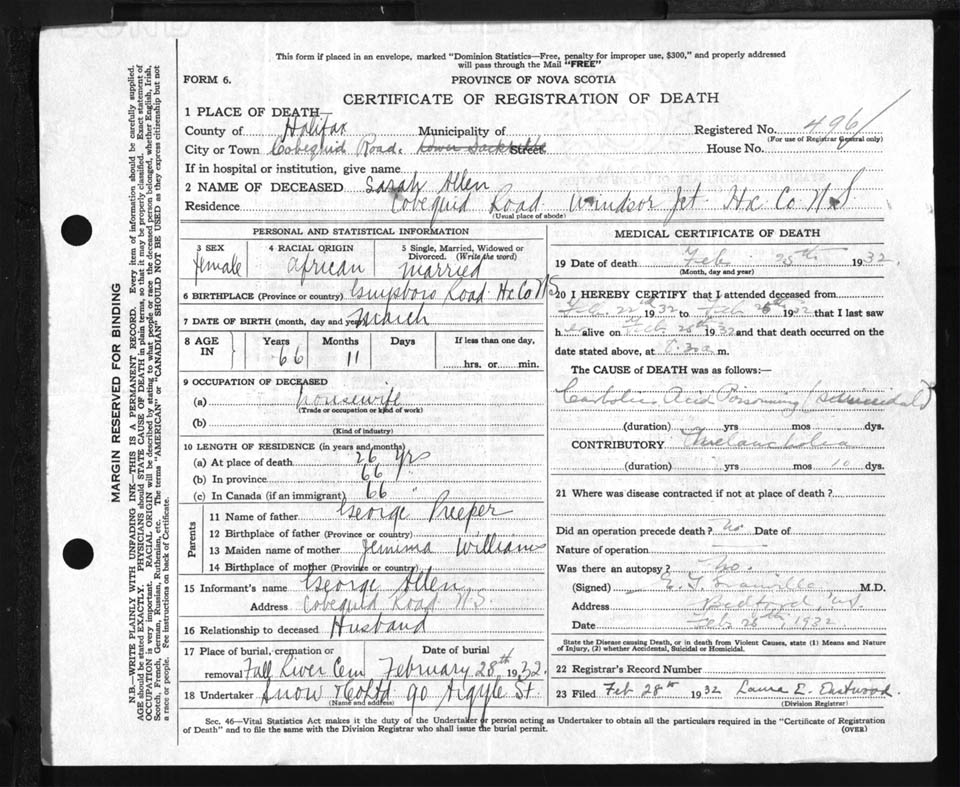 This form if placed in an envelope, marked "Dominion Statistics—Free, penalty for improper use, $300," and properly addressed
will pass through the Mail "FREE"
FORM 6.
PROVINCE OF NOVA SCOTIA
CERTIFICATE OF REGISTRATION OF DEATH
1 PLACE OF DEATH—
County of Halifax Municipality of Registered No. 496
(For use of Registrar General only)
City or Town Cobequid Road. Lower Sackville Street House No.
If in hospital or institution, give name
2 NAME OF DECEASED Sarah Allen
Residence Cobequid Road Windsor Jct Hx Co N S
(Usual place of abode)
PERSONAL AND STATISTICAL INFORMATION
3 SEX female
4 RACIAL ORIGIN african
5 Single, Married, Widowed or Divorced. (Write the word) married
6 BIRTHPLACE (Province or country) Guysboro Road Hx Co N S
7 DATE OF BIRTH (month, day and year) March
8 AGE IN Years 66 Months 11 Days If less than one day, hrs. or min.
9 OCCUPATION OF DECEASED
(a) housewife
(Trade or occupation or kind of work)
(b)
(Kind of industry)
10 LENGTH OF RESIDENCE (in years and months)
(a) At place of death 26 yrs
(b) In province 66 "
(c) In Canada (if an immigrant) 66 "
Parents
11 Name of father George Preeper
12 Birthplace of father (Province or country)
13 Maiden name of mother Jemima Williams
14 Birthplace of mother (Province or country)
15 Informant's name George Allen
Address Cobequid Road N.S.
16 Relationship to deceased Husband
17 Place of burial, cremation or removal Fall River Cem Date of burial February 28th 1932.
18 Undertaker Snow & Co Ltd 90 Argyle St.
(Name and address)
MEDICAL CERTIFICATE OF DEATH
19 Date of death Feb 25th 1932.
(Month, day and year)
20 I HEREBY CERTIFY that I attended deceased from
Feb. 22nd 1932 to Feb 26th 1932 that I last saw
h er alive on Feb 26th 1932 and that death occurred on
date stated above, at .30 a m.
The CAUSE of DEATH was as follows:—
Carbolic Acid Poisoning (Suicidal)
(duration) yrs mos dys.
CONTRIBUTORY Melancholia
(duration) yrs mos 10 dys.
21 Where was disease contracted if not at place of death?
Did an operation precede death? no Date of
Nature of operation
Was there an autopsy? No.
(Signed) E. T. Granville M.D.
Address Bedford, N.S.
Date Feb 26th, 1932
State the Disease causing Death, or in death from Violent Causes, state (1) Means and Nature of Injury, (2) whether Accidental, Suicidal or Homicidal.
22 Registrar's Record Number
23 Filed Feb 28th 1932 Laura E. Eastwood.
(Division Registrar)
Sec. 46—Vital Statistics Act makes it the duty of the Undertaker or person acting as Undertaker to obtain all the particulars required in the "Certificate of Registration
of Death" and to file the same with the Division Registrar who shall issue the burial permit.
(OVER)
MARGIN RESERVED FOR BINDING
N.B.—WRITE PLAINLY WITH UNFADING INK—THIS IS A PERMANENT RECORD. Every item of information should be carefully supplied.
AGE should be stated EXACTLY. PHYSICIANS should STATE CAUSE OF DEATH in plain terms, so that it may be properly classified. Exact statement of
OCCUPATION is very important. RACIAL ORIGIN will be described by stating to what people or race the deceased person belonged, whether English, Irish,
Scotch, French, German, Russian, Ruthenian, etc. The terms "AMERICAN" or "CANADIAN" SHOULD NOT BE USED as they express citizenship but not
a race or people. See instructions on back of Certificate.